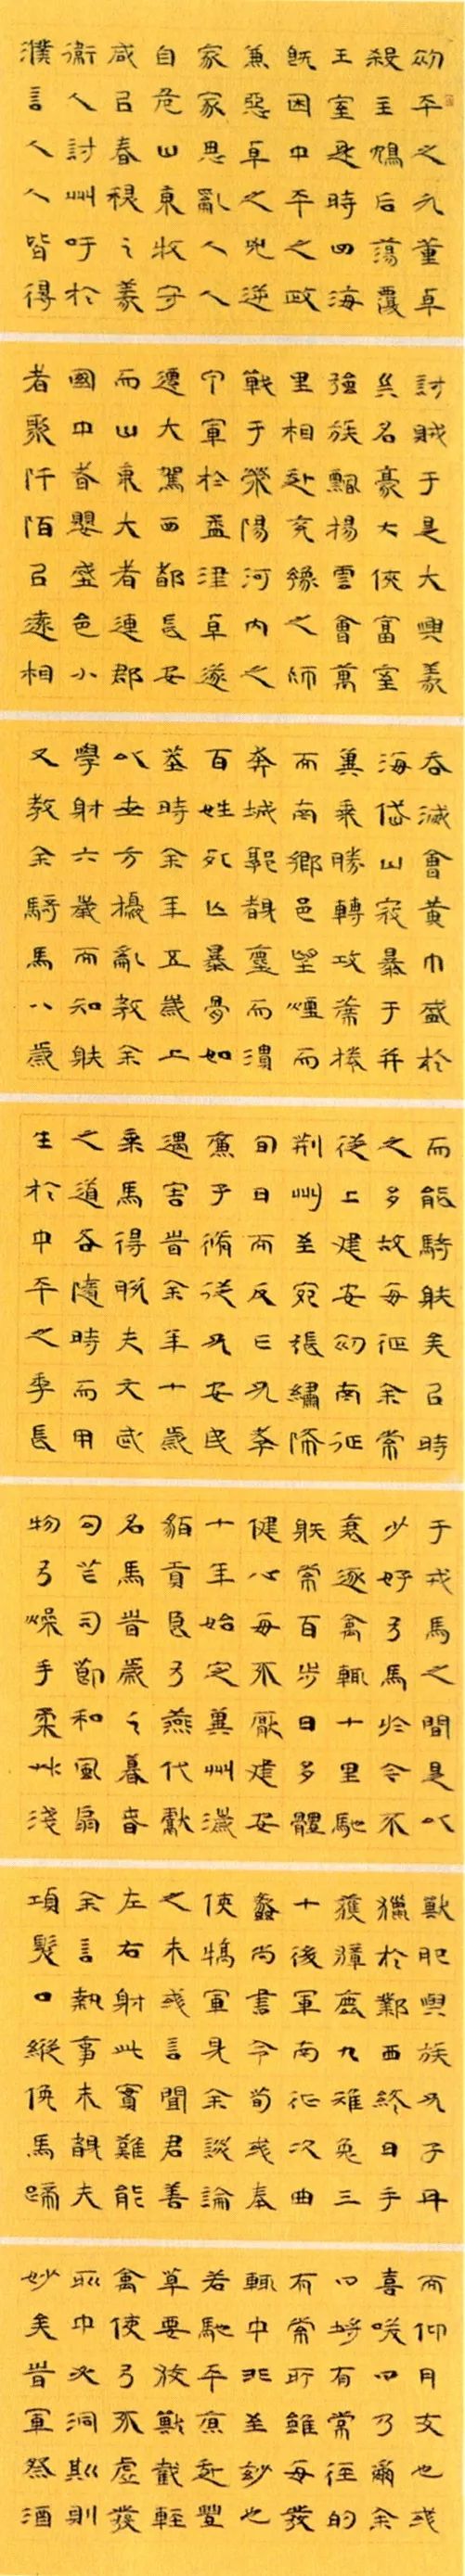 初平之元董卓
殺主鴆后蕩覆
王室是時四海
既困中平之政
兼惡卓之兇逆
家家思亂人人
自危山東牧守
咸以春秋之義
衛人討州吁於
濮言人人皆得
討賊于是大興義
兵名豪大俠富室
強族飄揚雲會萬
里相赴兗豫之師
戰于滎陽河內之
甲軍於孟津卓遂
遷大駕西都長安
而山東大者連郡
國中者嬰盛邑小
者聚阡陌以遠相
吞滅會黃巾盛於
海岱山寇暴于并
冀乘勝轉攻席捲
而南鄉邑望煙而
奔城郭覩塵而潰
百姓死亡暴骨如
莽時余年五歲上
以世方擾亂教余
學射六歲而知射
又教余騎馬八歲
而能騎射矣以時
之多故每征余常
從上建安初南征
荊州至宛張繡降
旬日而反亡兄孝
廉子脩從兄安民
遇害時余年十歲
乘馬得脫夫文武
之道各隨時而用
生於中平之季長
于戎馬之間是以
少好弓馬於今不
衰逐禽輒十里馳
射常百步日多體
健心每不厭建安
十年始定冀州濊
貊貢良弓燕代獻
名馬時歲之暮春
句芒司節和風扇
物弓燥手柔草淺
獸肥與族兄子丹
獵於鄴西終日手
獲獐鹿九雉兔三
十後軍南征次曲
蠡尚書令荀彧奉
使犒軍見余談論
之末彧言聞君善
左右射此實難能
余言執事未覩夫
項發口縱俛馬蹄
而仰月支也彧
喜笑曰乃爾余
曰埒有常徑的
有常所雖每發
輒中非至妙也
若馳平原赴豐
草要狡獸截輕
禽使弓不虛發
所中必洞斯則
妙矣時軍祭酒